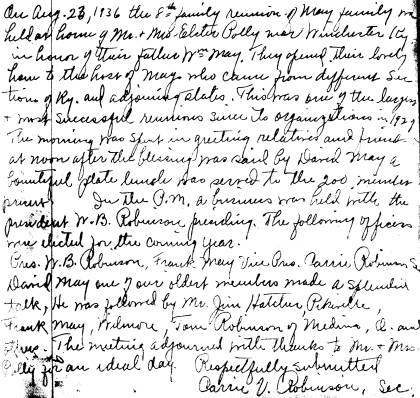 On Aug. 23, 1936 the 8th family reunion of May family was
held at home of Mr. + Mrs. Lester Polly near Winchester Ky
in honor of their father Wm May. They opened their lovely
home to the host of Mays who came from different Sec-
tions of Ky. and adjoining states. This was one of the largest
+ most successful reunions since to organizations in 1929
The morning was spent in greeting relatives and friends
at noon after the blessing was said by David May a
bountiful plate lunch was served to the 200 members
present. In the P.M. a business was held with the
president W. B. Robinson presiding. The following officers
were elected for the coming year.
Pres. W. B. Robinson, Frank May Vice Pres. Carrie Robinson S
David May one of our oldest members made a splendid
talk, He was followed by Mr. Jim Hatcher, Pikeville,
Frank May, Wilmore, Tom Robinson of Medina, O. and
The meeting adjourned with thanks to Mr. + Mrs.
Polly for an ideal day. Respectfully submitted
Carrie V. Robinson, Sec.